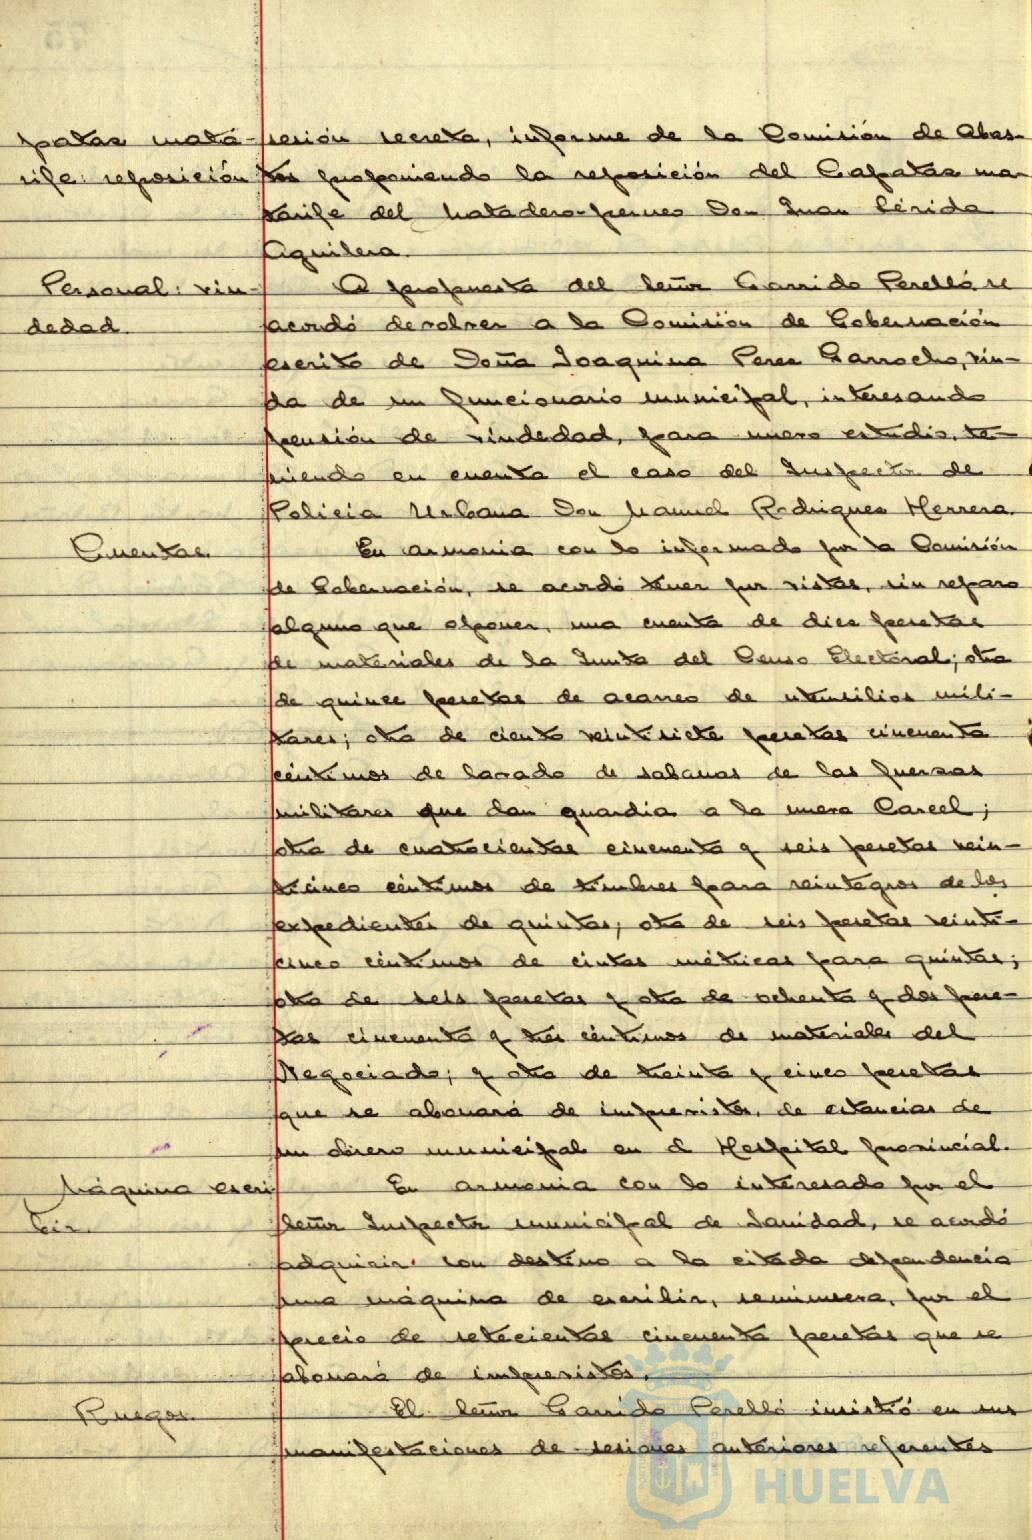 pataz matá-
rife: reposición
sesión secreta, informe de la Comisión de Abas-
tos proponiendo la reposición del Capataz ma-
tarife del Matadero-perneo Don Juan Cérida
Aguilera.
Personal: viu-
dedad.
A propuesta del Señor Garrido Perelló, se
acordó devolver a la Comisión de Gobernación
escrito de Doña Joaquina Perez Garrocho, viu-
da de un funcionario municipal, interesando
pensión de viudedad, para nuevo estudio, te-
niendo en cuenta el caso del Inspector de
Policia Urbana Don Manuel Rodriguez Herrera.
Cuentas.
En armonia con lo informado por la Comisión
de Gobernación, se acordó tener por vistas, sin reparo
alguno que oponer, una cuenta de diez pesetas
de materiales de la Junta del Censo Electoral; otra
de quince pesetas de acarreo de utensilios mili-
tares; otra de ciento veintisiete pesetas cincuenta
céntimos de lavado de sabanas de las fuerzas
militares que dan guardia a la nueva Carcel;
otra de cuatrocientas cincuenta y seis pesetas vein-
ticinco céntimos de timbres para reintegros de los
expedientes de quintas; otra de seis pesetas veinti-
cinco céntimos de cintas métricas para quintas;
otra de seis pesetas y otra de ochenta y dos pese-
tas cincuenta y tres céntimos de materiales del
Negociado; y otra de treinta y cinco pesetas
que se abonará de imprevistos, de estancias de
un obrero municipal en el Hospital provincial.
Máquina escri
bir.
En armonia con lo interesado por el
Señor Inspector municipal de Sanidad, se acordó
adquirir con destino a la citada dependencia
una máquina de escribir, seminueva, por el
precio de setecientas cincuenta pesetas que se
abonará de imprevistos.
Ruegos.
El Señor Garrido Perelló insistió en sus
manifestaciones de sesiones anteriores referentes
HUELVA